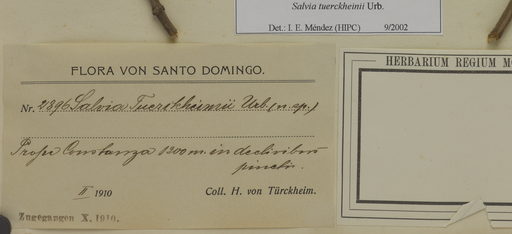 Salvia tuerckheinii Urb.
Det.: I. E. Méndez (HIPC) 9/2002
FLORA VON SANTO DOMINGO.
Nr. 2896 Salvia Tuerckheimii Urb. (n. sp.)
Prope Constanza 1200 m. in declivibus
pinetis.
II 1910 Coll. H. von Türckheim.
Zugegangen X. 1910.
HERBARIUM REGIUM M